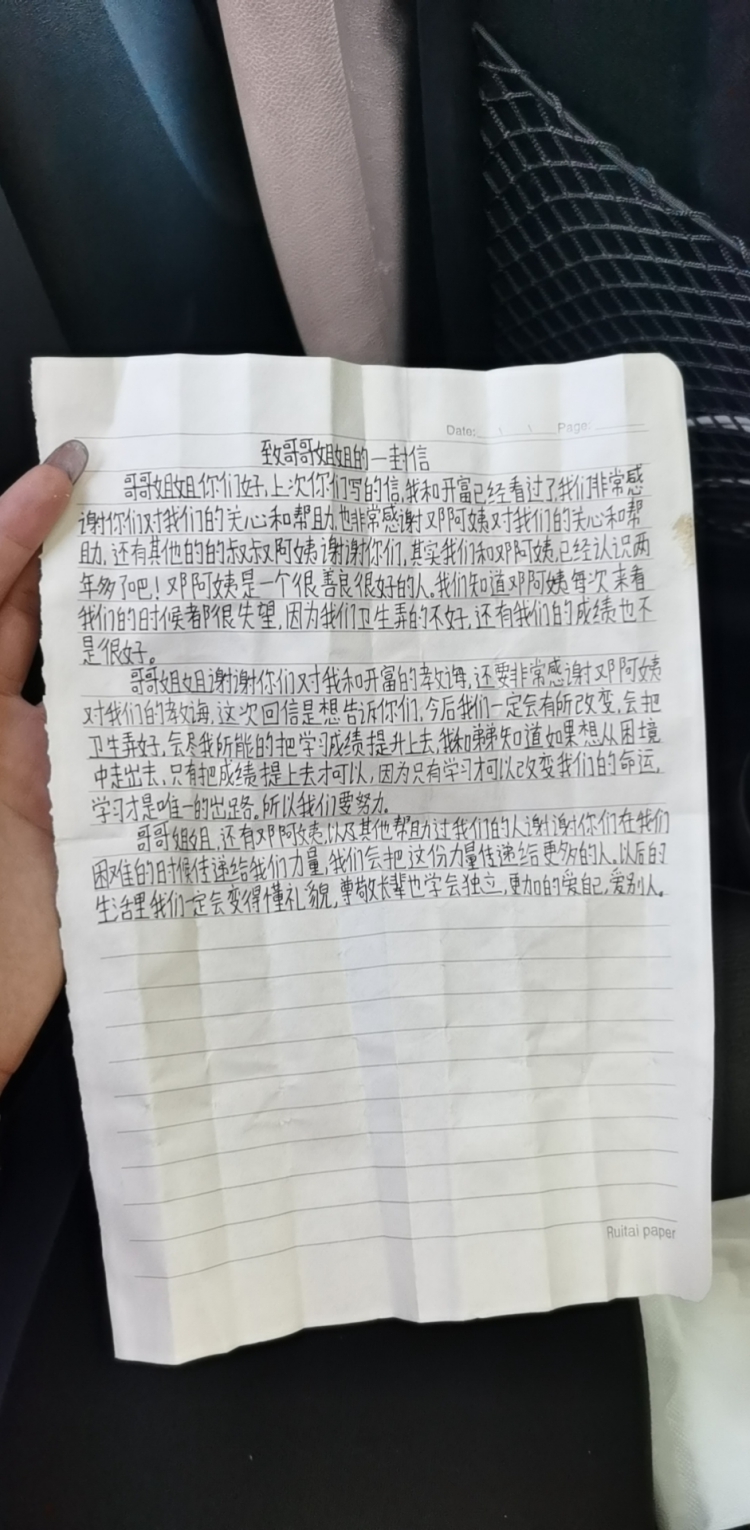 Date: \ \ Page:
致哥哥姐姐的一封信
哥哥姐姐你们好,上次你们写的信,我和开富已经看过了,我们非常感
谢你们对我们的关心和帮助,也非常感谢邓阿姨对我们的关心和帮
助,还有其他的的叔叔阿姨谢谢你们,其实我们和邓阿姨,已经认识两
年多了吧!邓阿姨是一个很善良很好的人。我们知道邓阿姨每次来看
我们的时候都很失望,因为我们卫生弄的不好,还有我们的成绩也不
是很好。
哥哥姐姐谢谢你们对我和开富的教诲,还要非常感谢邓阿姨
对我们的教诲,这次回信是想告诉你们,今后我们一定会有所改变,会把
卫生弄好,会尽我所能的把学习成绩提升上去,我和弟弟知道如果想从困境
中走出去,只有把成绩提上去才可以,因为只有学习才可以改变我们的命运,
学习才是唯一的出路。所以我们要努力。
哥哥姐姐,还有邓阿姨,以及其他帮助过我们的人谢谢你们在我们
困难的时候传递给我们力量,我们会把这份力量传递给更多的人。以后的
生活里我们一定会变得懂礼貌,尊敬长辈也学会独立,更加的爱自己,爱别人。
Ruitai paper